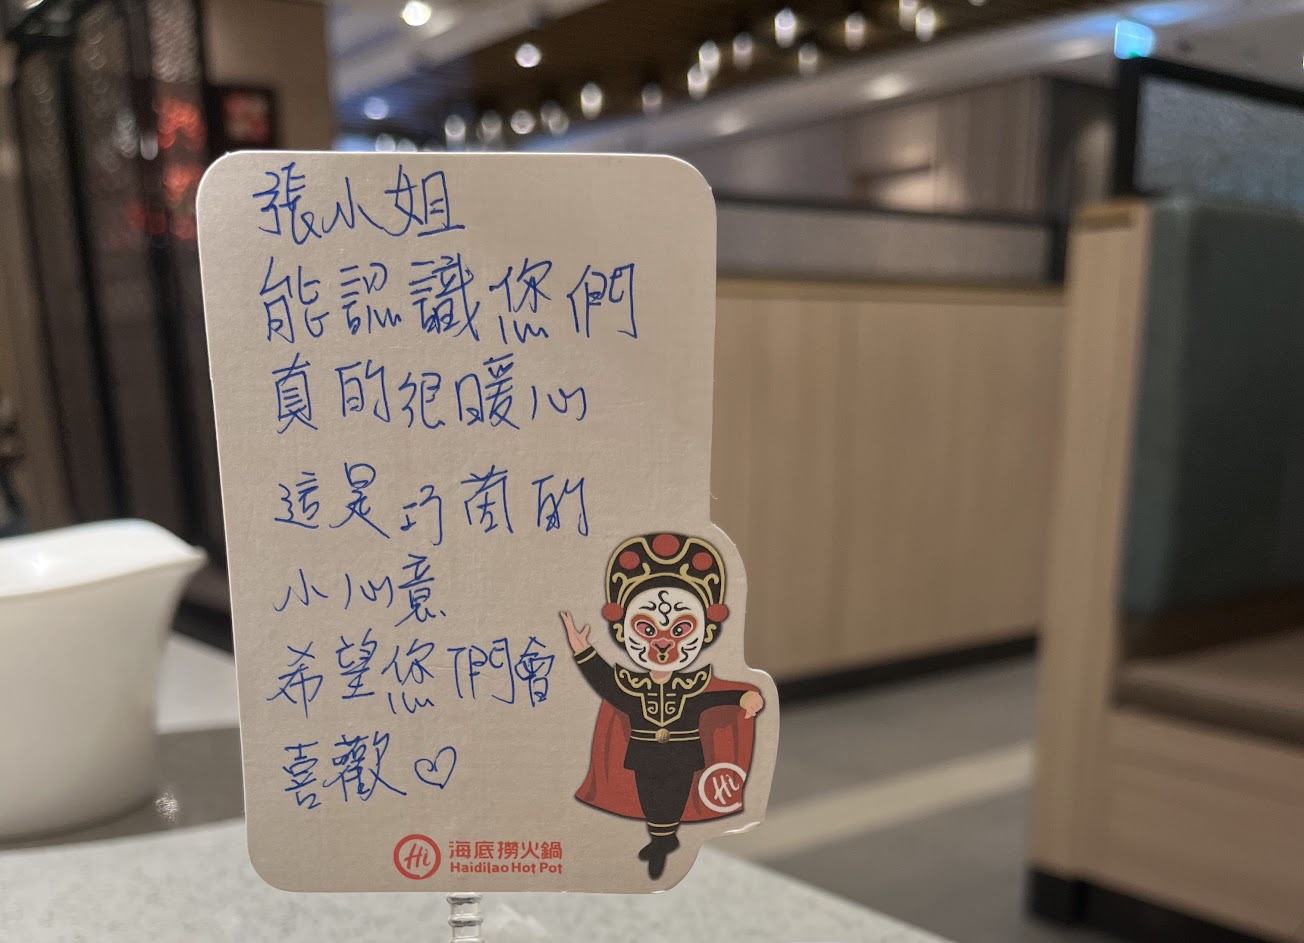 張小姐
能認識您們
真的很暖心
這是巧茵的
小心意
希望您們會
喜歡♡
Hi
Hi 海底撈火鍋
Haidilao Hot Pot